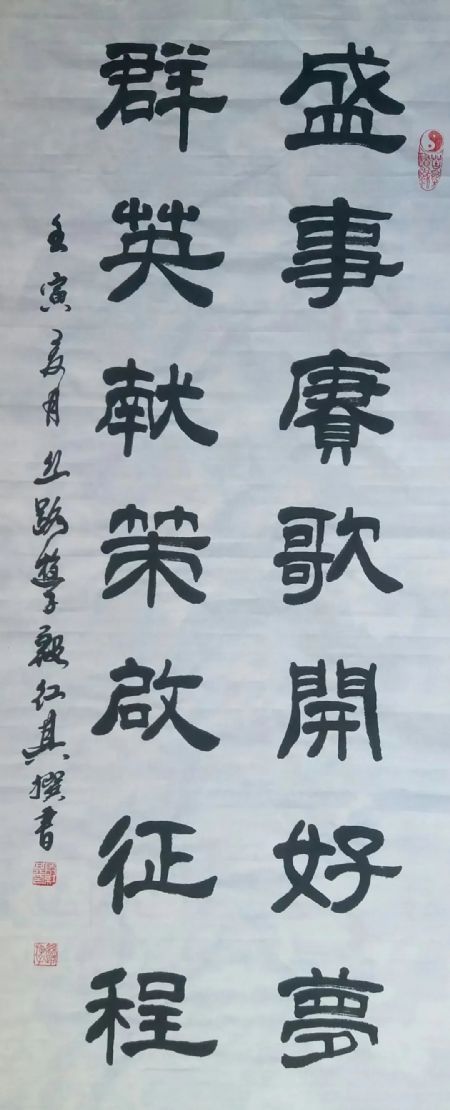 盛事賡歌開好夢
群英献策啟征程
壬寅夏月丝路遊子殷红其撰書